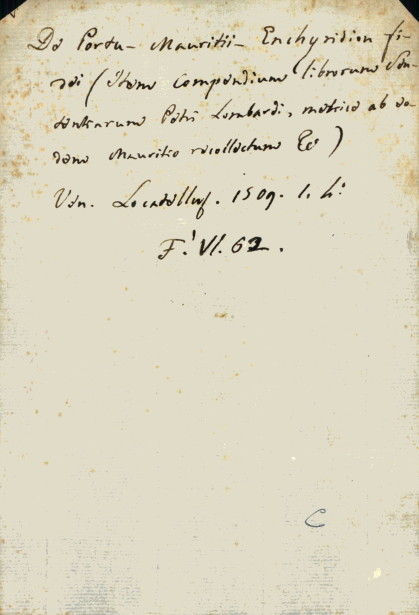 De Portu - Mauritii - Enchyridion fi-
dei (Item compendium librorum Sen-
tentiarum Petri Lombardi, metrice ab eo-
dem Mauritio recollectum &c)
Ven. Locatellus. 1509. 1. h:
F. VI. 62.
C